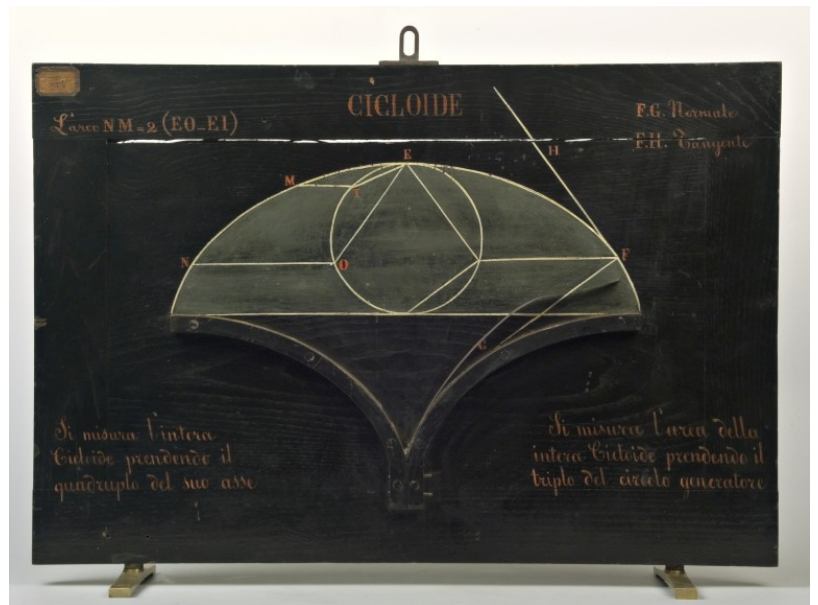 CICLOIDE
L'arco NM=2(EO-EI)
F.G. Normale
F.H. Tangente
H
E
M
I
N
O
F
G
Si misura l'intera
Cicloide prendendo il
quadruplo del suo asse
Si misura l'area della
intera Cicloide prendendo il
triplo del circolo generatore